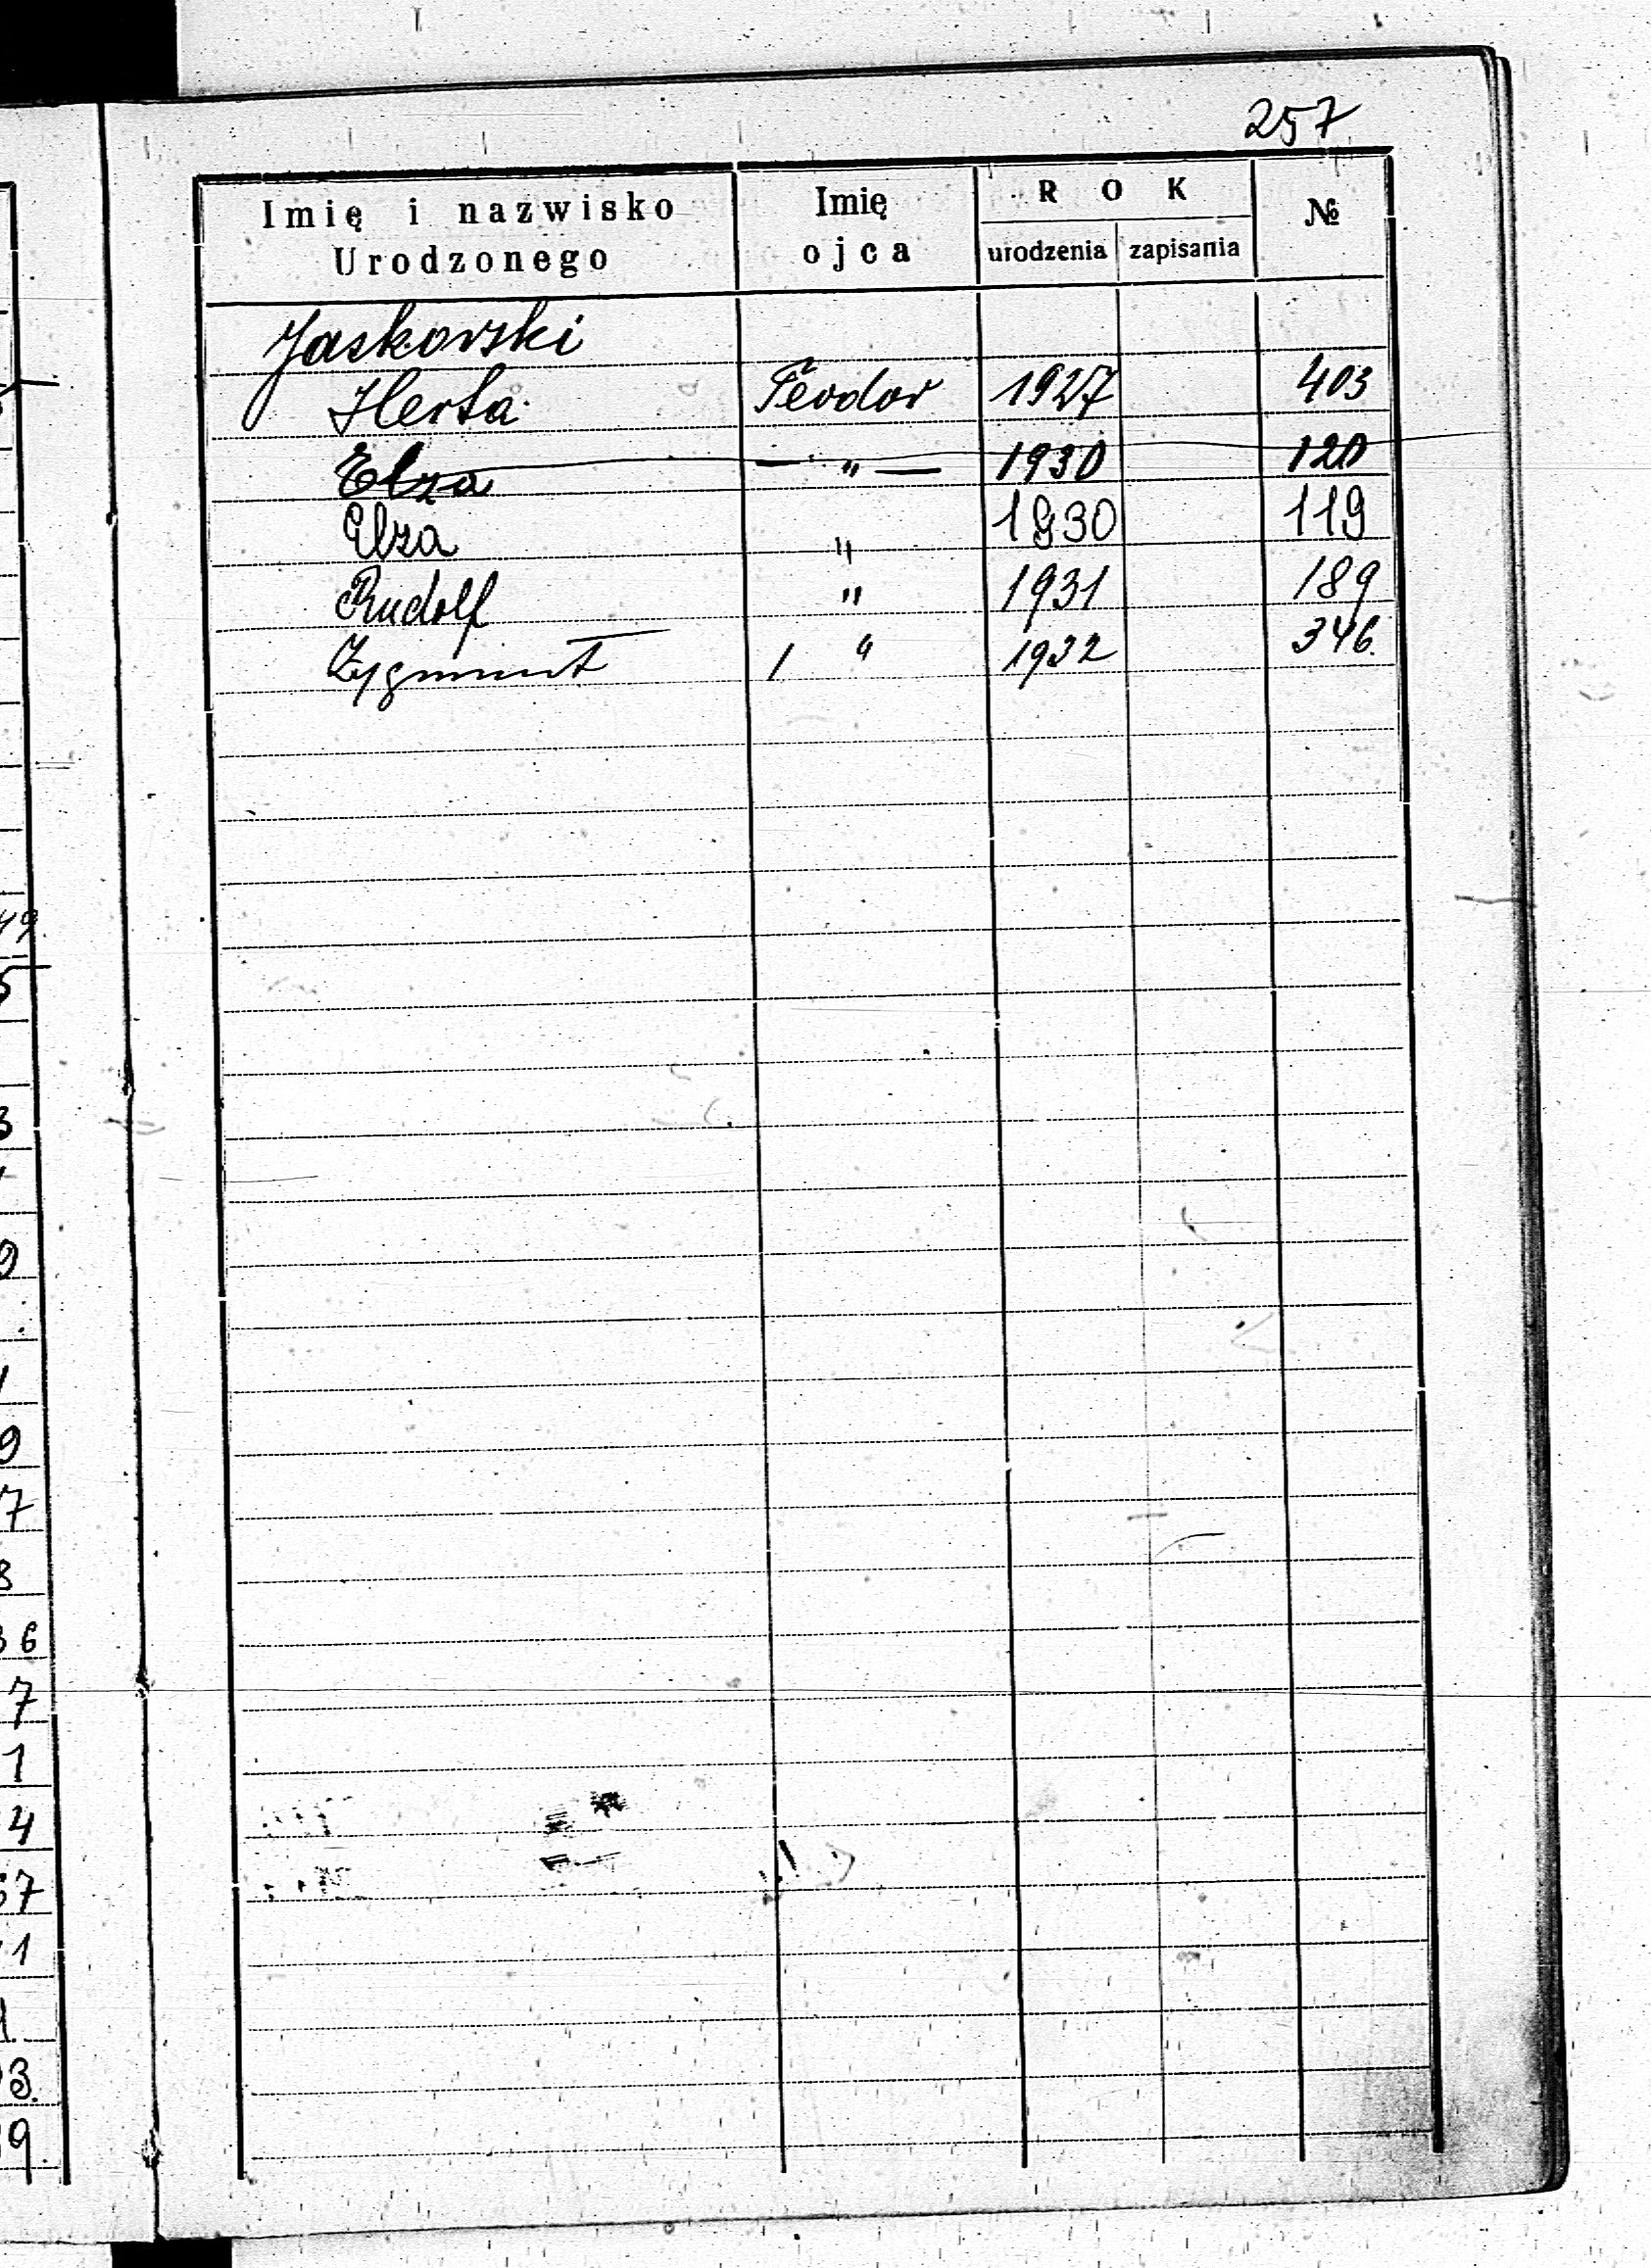 257
Imię i nazwisko Urodzonego Imię ojca ROK urodzenia zapisania №
Jaskorski
Herta Teodor 1927 403
Elza — " — 1930 120
Elza " 1930 119
Rudolf " 1931 189
Zygmunt / " 1932 346.
49.
5
3
9
9
7
8
36
7
1
4
67
1
1.
3.
9